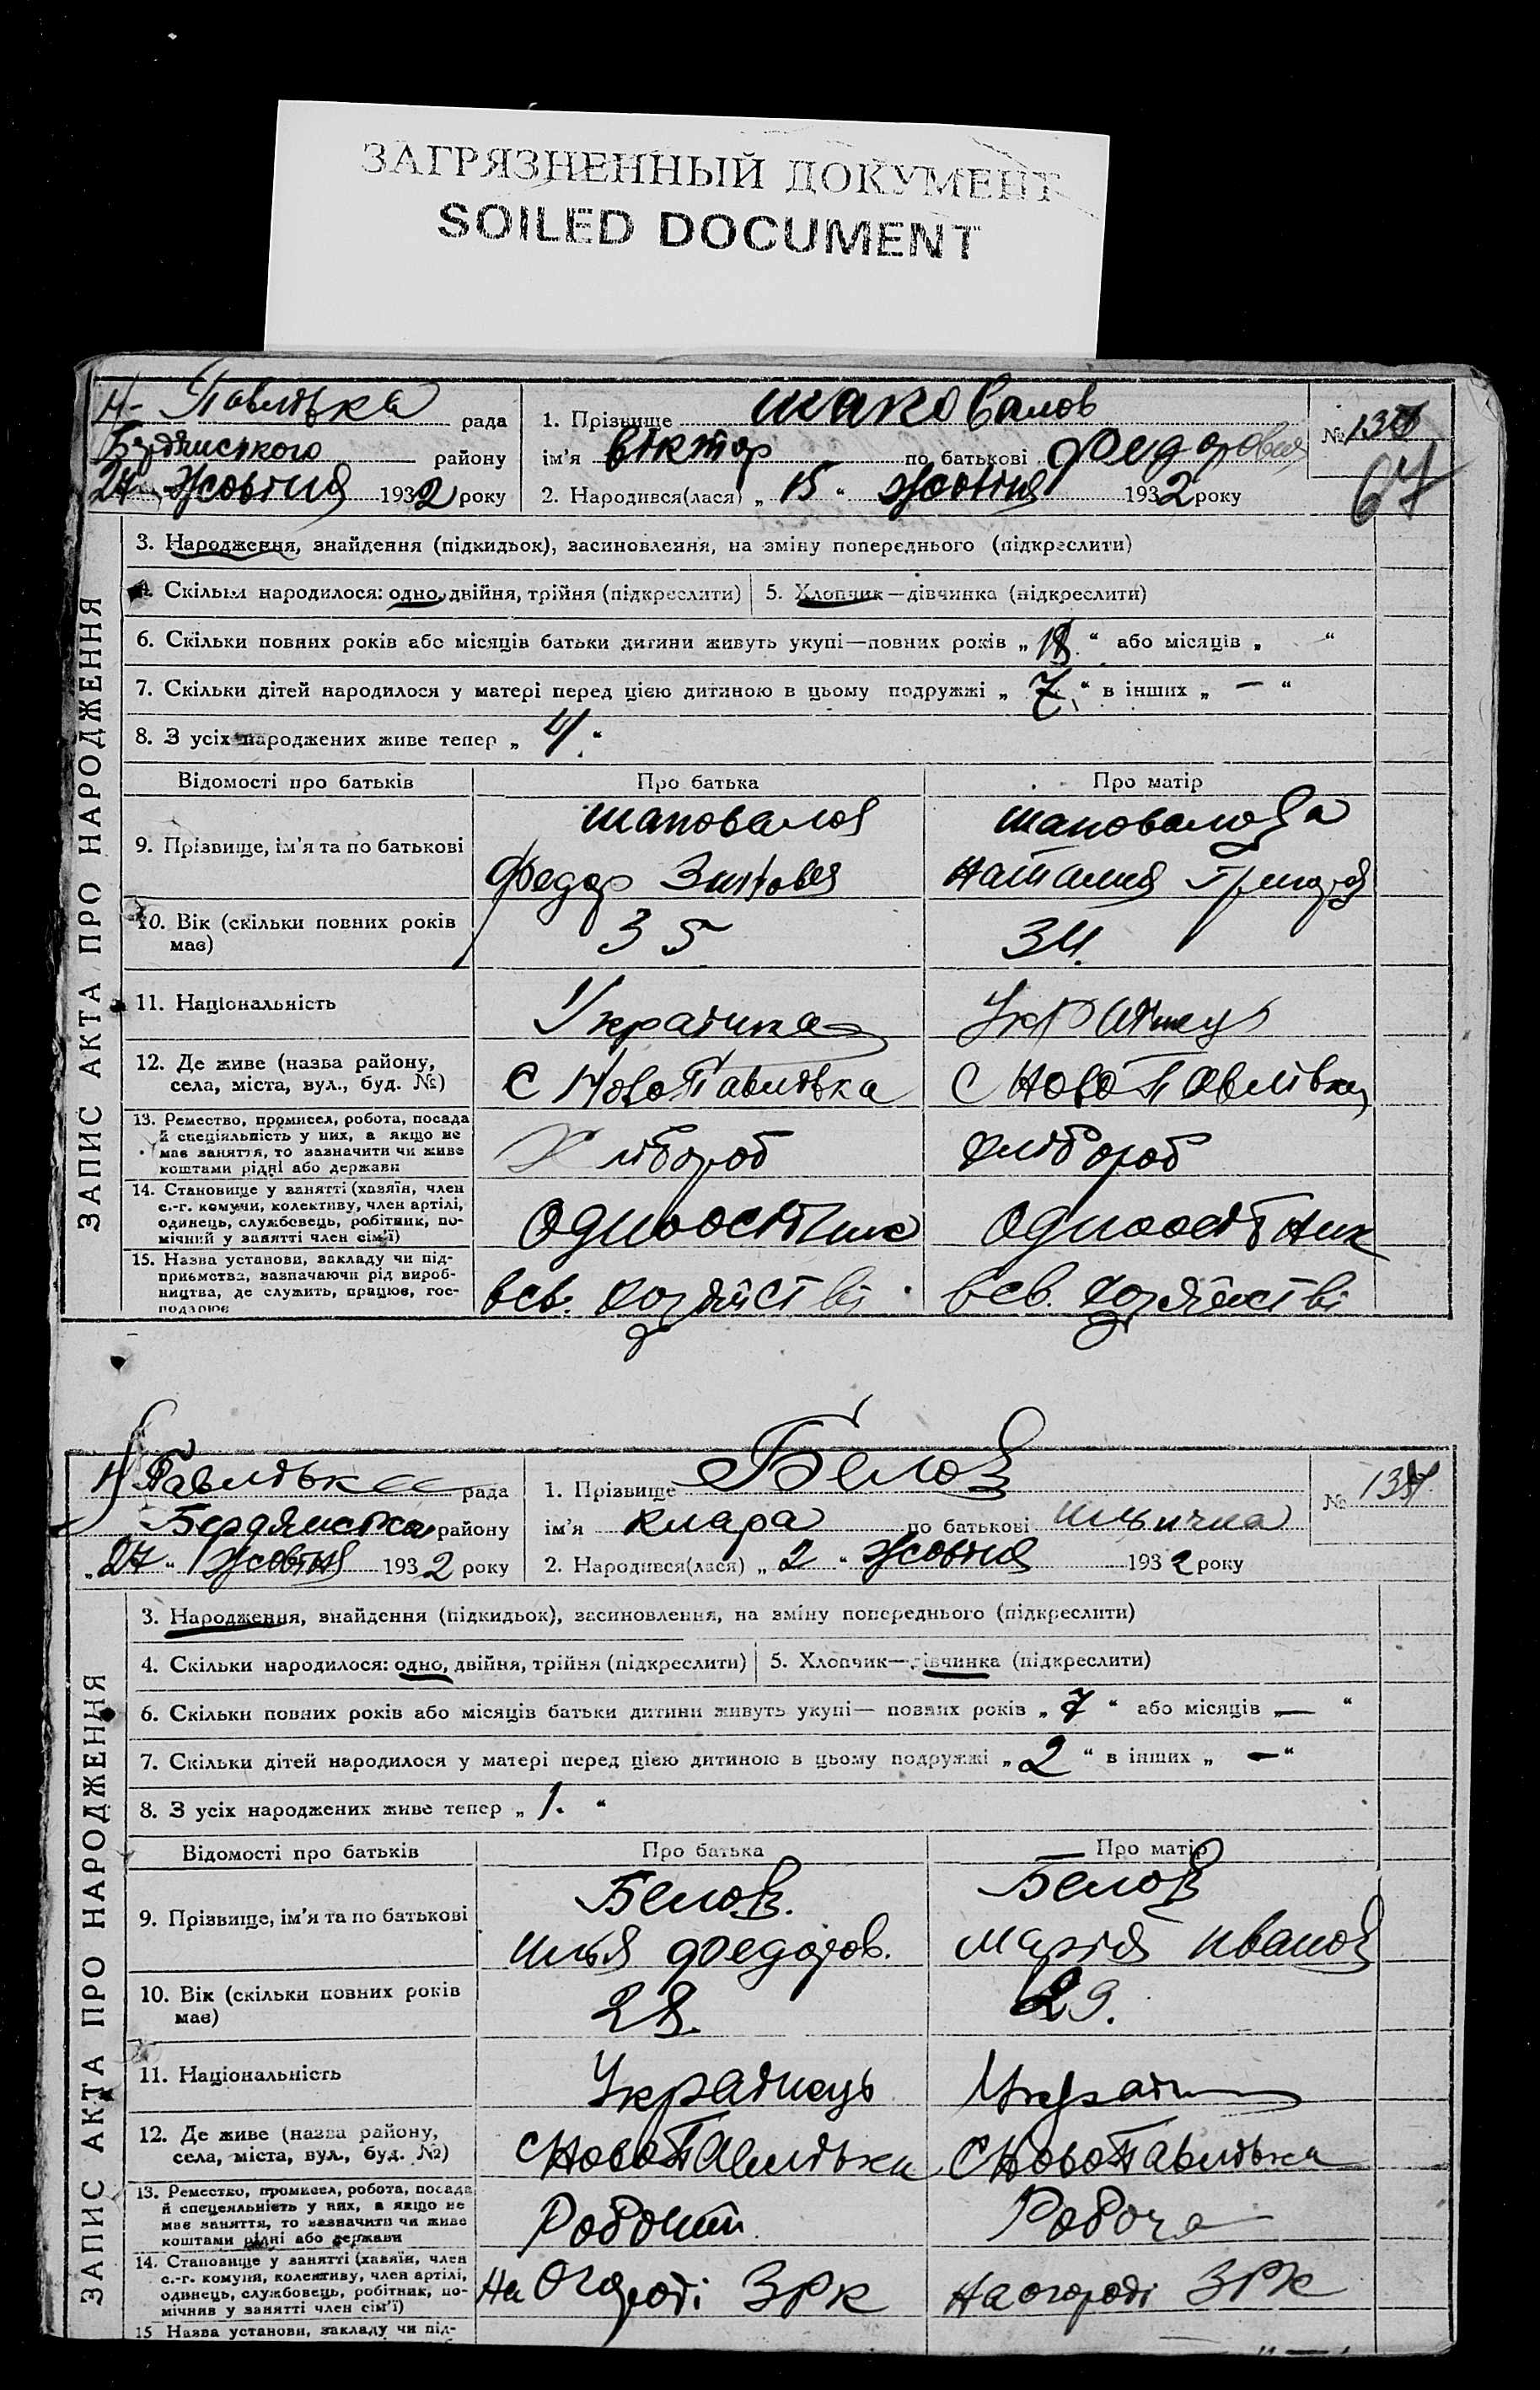 ЗАГРЯЗНЕННЫЙ ДОКУМЕНТ
SOILED DOCUMENT
Н-Павлівка рада
Бердянського району
27 Жовтня 1932 року
1. Прізвище Шаповалов
ім'я Віктор по батькові Федоров
2. Народився(лася) „15“ жовтня 1932 року
№
67
ЗАПИС АКТА ПРО НАРОДЖЕННЯ
3. Народження, знайдення (підкидьок), засиновлення, на зміну попереднього (підкреслити)
4. Скільки народилося: одно, двійня, трійня (підкреслити) 5. Хлопчик—дівчинка (підкреслити)
6. Скільки повних років або місяців батьки дитини живуть укупі—повних років „18“ або місяців „ “
7. Скільки дітей народилося у матері перед цією дитиною в цьому подружжі „7“ в інших „—“
8. З усіх народжених живе тепер „4“
Відомості про батьків Про батька Про матір
9. Прізвище, ім'я та по батькові
Шаповалов
Федор
Шаповалова
Наталия
10. Вік (скільки повних років має)
35
34.
11. Національність
12. Де живе (назва району, села, міста, вул., буд. №)
с НовоПавлівка
с НовоПавлівка
13. Ремество, промисел, робота, посада
й спеціяльність у них, а якщо не
має заняття, то зазначити чи живе
коштами рідні або держави
Хлібороб
хлібороб
14. Становище у занятті (хазяїн, член
с.-г. комуни, колективу, член артілі,
одинець, службовець, робітник, по-
мічний у занятті член сім'ї)
Одноосібник
Одноосібник
15. Назва установи, закладу чи під-
приємства, зазначаючи рід вироб-
ництва, де служить, працює, гос-
подарює
всв. хозяйстві
всв. хозяйстві
Н Павлівка рада
Бердянська району
„27“ Жовтня 1932 року
1. Прізвище Белов
ім'я Клара по батькові Ильична
2. Народився(лася) „2“ жовтня 1932 року
№
ЗАПИС АКТА ПРО НАРОДЖЕННЯ
3. Народження, знайдення (підкидьок), засиновлення, на зміну попереднього (підкреслити)
4. Скільки народилося: одно, двійня, трійня (підкреслити) 5. Хлопчик—дівчинка (підкреслити)
6. Скільки повних років або місяців батьки дитини живуть укупі— повних років „7“ або місяців „—“
7. Скільки дітей народилося у матері перед цією дитиною в цьому подружжі „2“ в інших „—“
8. З усіх народжених живе тепер „1.“
Відомості про батьків Про батька Про матір
9. Прізвище, ім'я та по батькові
Белов.
Илья Федоров.
Белов
Марія Иванов
10. Вік (скільки повних років має)
28.
29.
11. Національність
Українець
12. Де живе (назва району, села, міста, вул., буд. №)
с НовоПавлівка
с НовоПавлівка
13. Ремество, промисел, робота, посада
й спецеяльність у них, а якщо не
має заняття, то зазначити чи живе
коштами рідні або держави
Робоча
14. Становище у занятті (хазяїн, член
с.-г. комуни, колективу, член артілі,
одинець, службовець, робітник, по-
мічник у занятті член сім'ї)
На Огороді ЗРК
На огороді ЗРК
15 Назва установи, закладу чи під-